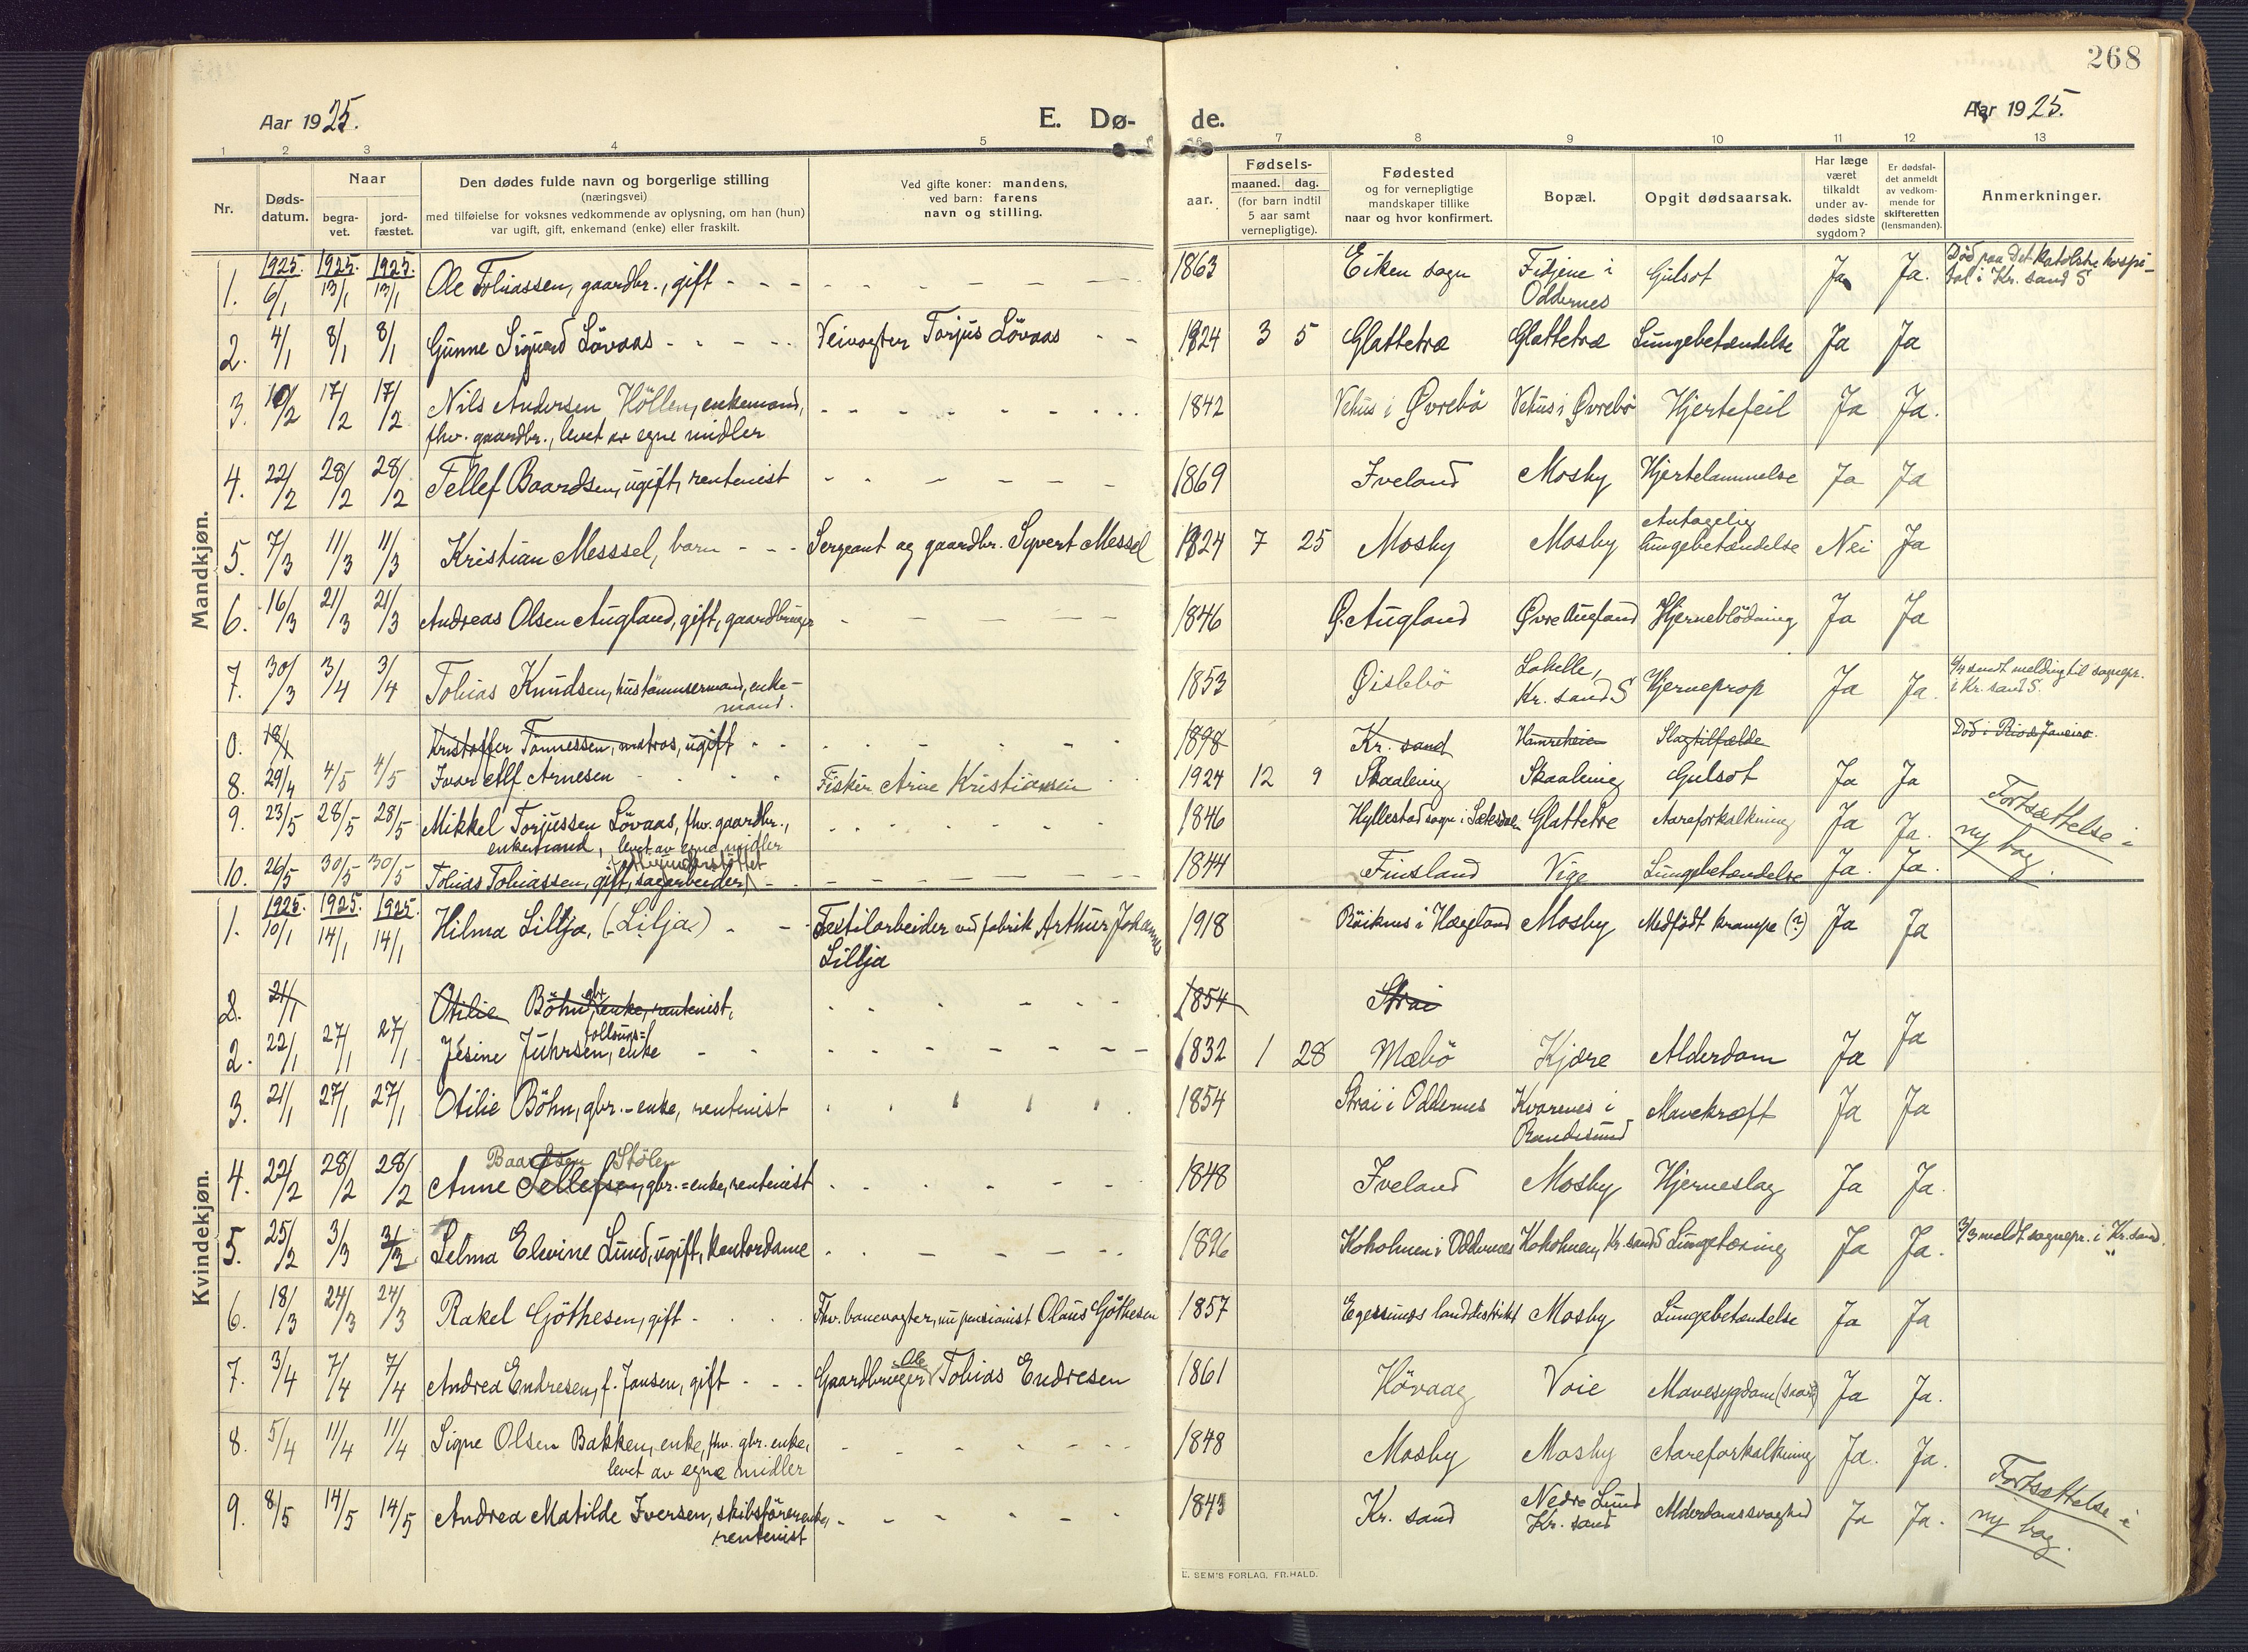 268
Aar 1925.
E. Dø-
de.
Aar 1925.
1 2 3 4 5 6 7 8 9 10 11 12 13
Nr.
Døds-
datum.
Naar
begra-
vet.
jord-
fæstet.
Den dødes fulde navn og borgerlige stilling
(næringsvei)
med tilføielse for voksnes vedkommende av oplysning, om han (hun)
var ugift, gift, enkemand (enke) eller fraskilt.
Ved gifte koner: mandens,
ved barn: farens
navn og stilling.
Fødsels-
aar.
maaned. dag.
(for barn indtil
5 aar samt
vernepligtige).
Fødested
og for vernepligtige
mandskaper tillike
naar og hvor konfirmert.
Bopæl.
Opgit dødsaarsak.
Har læge
været
tilkaldt
under av-
dødes sidste
sygdom?
Er dødsfal-
det anmeldt
av vedkom-
mende for
skifteretten
(lensmanden).
Anmerkninger.
Mandkjøn.
1925. 1925. 1925.
1. 6/1 13/1 13/1 Ole Tobiassen, gaardbr., gift - - - 1863 Eiken sogn Fidjene i Oddernes Gulsot Ja Ja. Død paa Det katolske hospi-
tal i Kr. sand S
2. 4/1 8/1 8/1 Gunne Sigurd Lövaas - - - Veivogter Torjus Lövaas - - 1924 3 5 Glattetræ Glattetræ Lungebetændelse Ja Ja
3. 10/2 17/2 17/2 Nils Andersen Höllen, enkemand,
fhv. gaardbr., levet av egne midler 1842 Vehus i Øvrebö Vehus i Øvrebö Hjertefeil Ja Ja.
4. 22/2 28/2 28/2 Tellef Baardsen, ugift, rentenist 1869 Iveland Mosby Hjertelammelse Ja Ja
5. 7/3 11/3 11/3 Kristian Messsel, barn - - - Sergeant og gaardbr. Syvert Messel 1924 7 25 Mosby Mosby Antagelig
lungebetændelse Nei Ja
6. 16/3 21/3 21/3 Andreas Olsen Augland, gift, gaardbruger 1846 Ø. Augland Øvre Augland Hjerneblödning Ja Ja
7. 30/3 3/4 3/4 Tobias Knudsen, hustömmermand, enke-
mand. 1853 Øislebö Lahelle,
Kr. sand S Hjerneprop Ja Ja. 4/4 sendt melding til sognepr.
i Kr. sand S.
0. 18/1 Kristoffer Tönnessen, matros, ugift - - 1898 Kr. sand Hamreheia Slagtilfælde Död i Rio de Janeiro.
8. 29/4 4/5 4/5 Ivar Alf Arnesen Fisker Arne Kristiansen 1924 12 9 Skaalevig Skaalevig Gulsot Ja Ja
9. 23/5 28/5 28/5 Mikkel Torjussen Lövaas, fhv. gaardbr.,
enkemand, levet av egne midler 1846 Hyllestad sogn i Sætesdalen Glattetre Aareforkalkning Ja Ja.
10. 26/5 30/5 30/5 Tobias Tobiassen, gift, sagarbeider, fattigunderstöttet 1844 Finsland Vige Lungebetændelse Ja. Ja.
Fortsættelse i
ny bog.
Kvindekjøn.
1925. 1925. 1925.
1. 10/1 14/1 14/1 Hilma Lillja, (Lilja) - - Textilarbeider ved fabrik Arthur Johannes
Lillja 1918 Röiknes i Hægeland Mosby Medfödt krampe (?) Ja Ja
2. 21/1 Otilie Böhn, gbr. enke, rentenist, 1854 Strai
2. 22/1 27/1 27/1 Jesine Juhrsen, tollsurs= enke - - 1832 1 28 Mæbö Kjære Alderdom Ja Ja
3. 21/1 27/1 27/1 Otilie Böhn, gbr.-enke, rentenist 1854 Strai i Oddernes Kvarenes i
Randesund Mavekræft Ja Ja
4. 22/2 28/2 28/2 Baardsen Stölen
Anne Tellefsen, gbr.=enke, rentenist 1848 Iveland Mosby Hjerneslag Ja Ja.
5. 25/2 3/3 3/3 Selma Elevine Lund, ugift, kontordame 1896 Kokolmen i Oddernes Kokolmen, Kr. sand S Lungetæring Ja Ja. 3/3 meldt sognepr. i Kr. sand.
6. 18/3 24/3 24/3 Rakel Göthesen, gift - Fhv. banevogter, nu pensionist Olaus Göthesen 1857 Egersunds landdistrikt Mosby Lungebetændelse Ja Ja
7. 3/4 7/4 7/4 Andrea Endresen, f. Jansen, gift - - - Gaardbruger Ole Tobias Endresen 1861 Hövaag Voie Mavesygdom Ja Ja.
8. 5/4 11/4 11/4 Signe Olsen Bakken, enke, fhv. gbr. enke,
levet av egne midler 1848 Mosby Mosby Aareforkalkning Ja. Ja.
9. 8/5 14/5 14/5 Andrea Matilde Iversen, skibsförerenke,
rentenist 1843 Kr. sand Nedre Lund
Kr. sand Alderdomssvaghed Ja Ja.
Fortsættelse i
ny bog.
E. SEM'S FORLAG, FR.HALD.